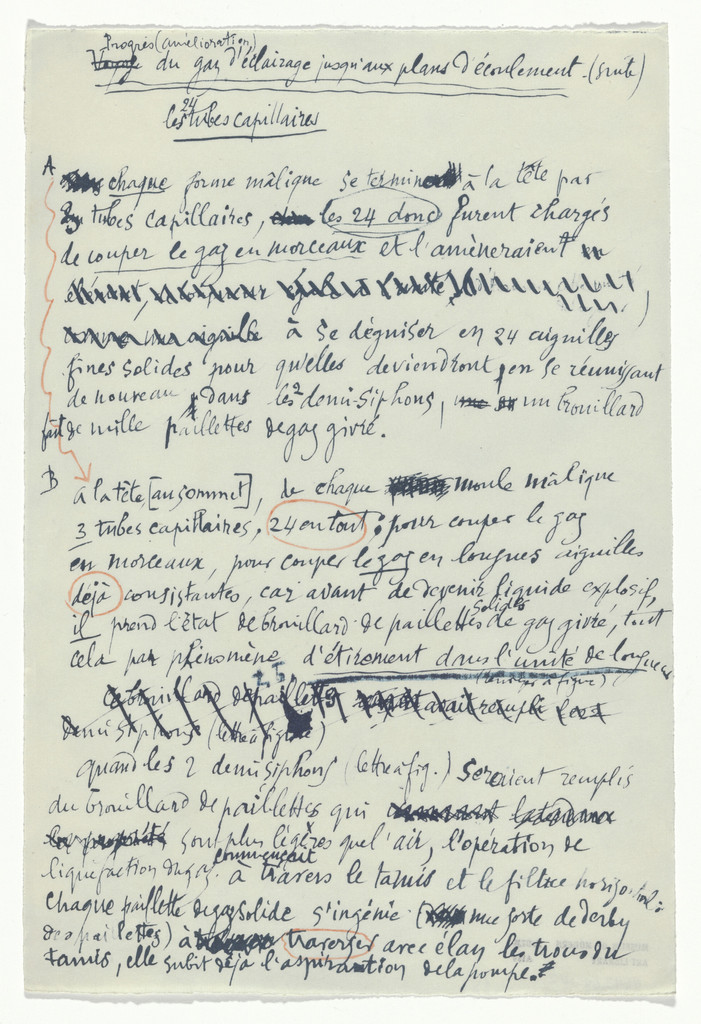 Progrès (amélioration)
du gaz d'éclairage jusqu'aux plans d'écoulement (suite)
24
les tubes capillaires
A
chaque forme mâlique se termin à la tête par
tubes capillaires, les 24 donc furent chargés
de couper le gaz en morceaux et l'amèneraient
à se déguiser en 24 aiguilles
fines solides pour qu'elles deviendront, en se réunissant
de nouveau, dans les 2 demi-siphons, un brouillard
fait de mille paillettes de gaz givré.
B
à la tête [au sommet], de chaque moule mâlique
3 tubes capillaires, 24 en tout; pour couper le gaz
en morceaux, pour couper le gaz en longues aiguilles
déjà consistantes, car avant de devenir liquide explosif,
solides
il prend l'état de brouillard de paillettes de gaz givré, tout
cela par phénomène d'étirement dans l'unité de longueur
ce brouillard de paillettes avait rempli les
demi siphons (lettre à figure)
quand les 2 demi siphons (lettre à fig.) seraient remplis
du brouillard de paillettes qui
sont plus légères que l'air, l'opération de
commençait
liquéfaction du gaz à travers le tamis et le filtre horizontal:
chaque paillette de gaz solide s'ingénie (une sorte de derby
des paillettes) à traverser avec élan les trous du
tamis, elle subit déjà l'aspiration de la pompe.